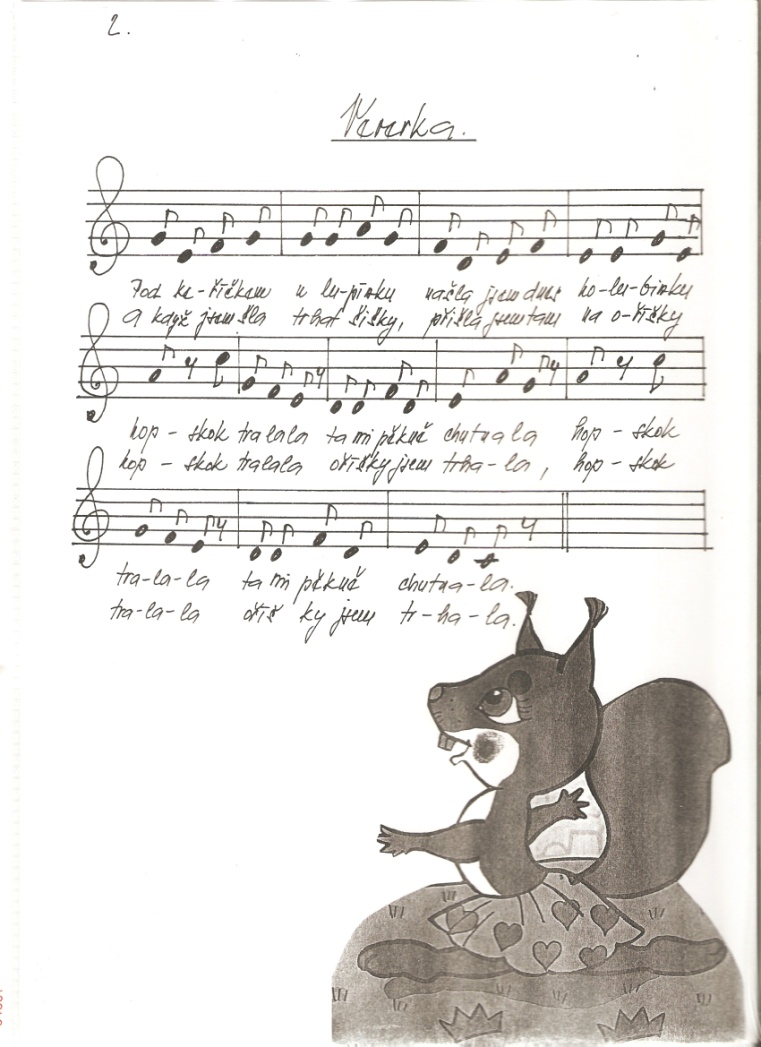 2.
Veverka.
Pod ke-říčkem u lu-pínku našla jsem dnes ho-lu-binku
A když jsem šla trhat šišky, přišla jsem tam na o-říšky
hop - skok tra la la ta mi pěkně chutna la hop - skok
hop - skok tralala oříšky jsem trha - la, hop - skok
tra-la-la ta mi pěkně chutna-la.
tra-la-la oříš ky jsem tr-ha-la.